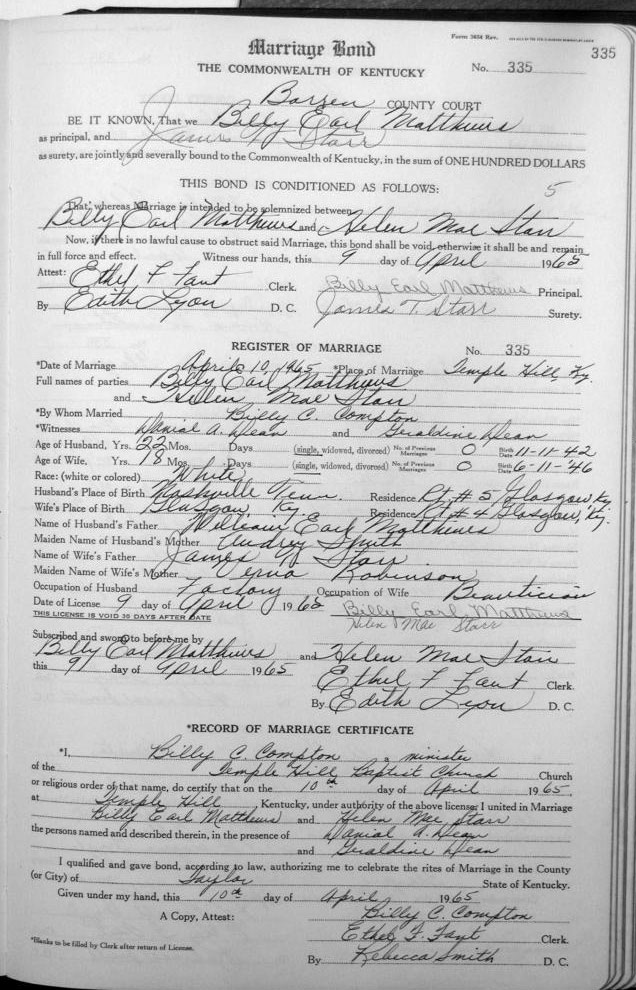 Form 3654 Rev.
335
Marriage Bond
No. 335
THE COMMONWEALTH OF KENTUCKY
Barren COUNTY COURT
BE IT KNOWN, That we Billy Earl Matthews
as principal, and James T. Starr
as surety, are jointly and severally bound to the Commonwealth of Kentucky, in the sum of ONE HUNDRED DOLLARS
THIS BOND IS CONDITIONED AS FOLLOWS:
5
That, whereas Marriage is intended to be solemnized between
Billy Earl Matthews and Helen Mae Starr
Now, if there is no lawful cause to obstruct said Marriage, this bond shall be void, otherwise it shall be and remain
in full force and effect. Witness our hands, this 9 day of April 1965
Attest: Ethel F Fant Clerk. Billy Earl Matthews Principal.
By Edith Lyon D. C. James T. Starr Surety.
REGISTER OF MARRIAGE No. 335
*Date of Marriage April 10, 1965 *Place of Marriage Temple Hill, Ky.
Full names of parties Billy Earl Matthews
and Helen Mae Starr
*By Whom Married Billy C. Compton
*Witnesses Danial A. Dean and Geraldine Dean
Age of Husband, Yrs. 22 Mos. Days (single, widowed, divorced) No. of Previous Marriages 0 Birth Date 11-11-42
Age of Wife, Yrs. 18 Mos. Days (single, widowed, divorced) No. of Previous Marriages 0 Birth Date 6-11-'46
Race: (white or colored) White
Husband's Place of Birth Nashville Tenn. Residence Rt # 5 Glasgow Ky
Wife's Place of Birth Glasgow, Ky. Residence Rt # 4 Glasgow, Ky.
Name of Husband's Father William Earl Matthews
Maiden Name of Husband's Mother Audrey Smith
Name of Wife's Father James Starr
Maiden Name of Wife's Mother Robinson
Occupation of Husband Factory Occupation of Wife Beautician
Date of License 9 day of April 1965 Billy Earl Matthews
THIS LICENSE IS VOID 30 DAYS AFTER DATE Helen Mae Starr
Subscribed and sworn to before me by
Billy Earl Matthews and Helen Mae Starr
this 9 day of April 1965 Ethel F Fant Clerk.
By Edith Lyon D. C.
*RECORD OF MARRIAGE CERTIFICATE
*I, Billy C. Compton, a minister
of the Temple Hill Baptist Church Church
or religious order of that name, do certify that on the 10th day of April 1965.
at Temple Hill Kentucky, under authority of the above license, I united in Marriage
Billy Earl Matthews and Helen Mae Starr
the persons named and described therein, in the presence of Danial A. Dean
and Geraldine Dean
I qualified and gave bond, according to law, authorizing me to celebrate the rites of Marriage in the County
(or City) of Taylor State of Kentucky.
Given under my hand, this 10th day of April 1965
Billy C. Compton
A Copy, Attest: Ethel F. Fant Clerk.
*Blanks to be filled by Clerk after return of License.
By Rebecca Smith D. C.